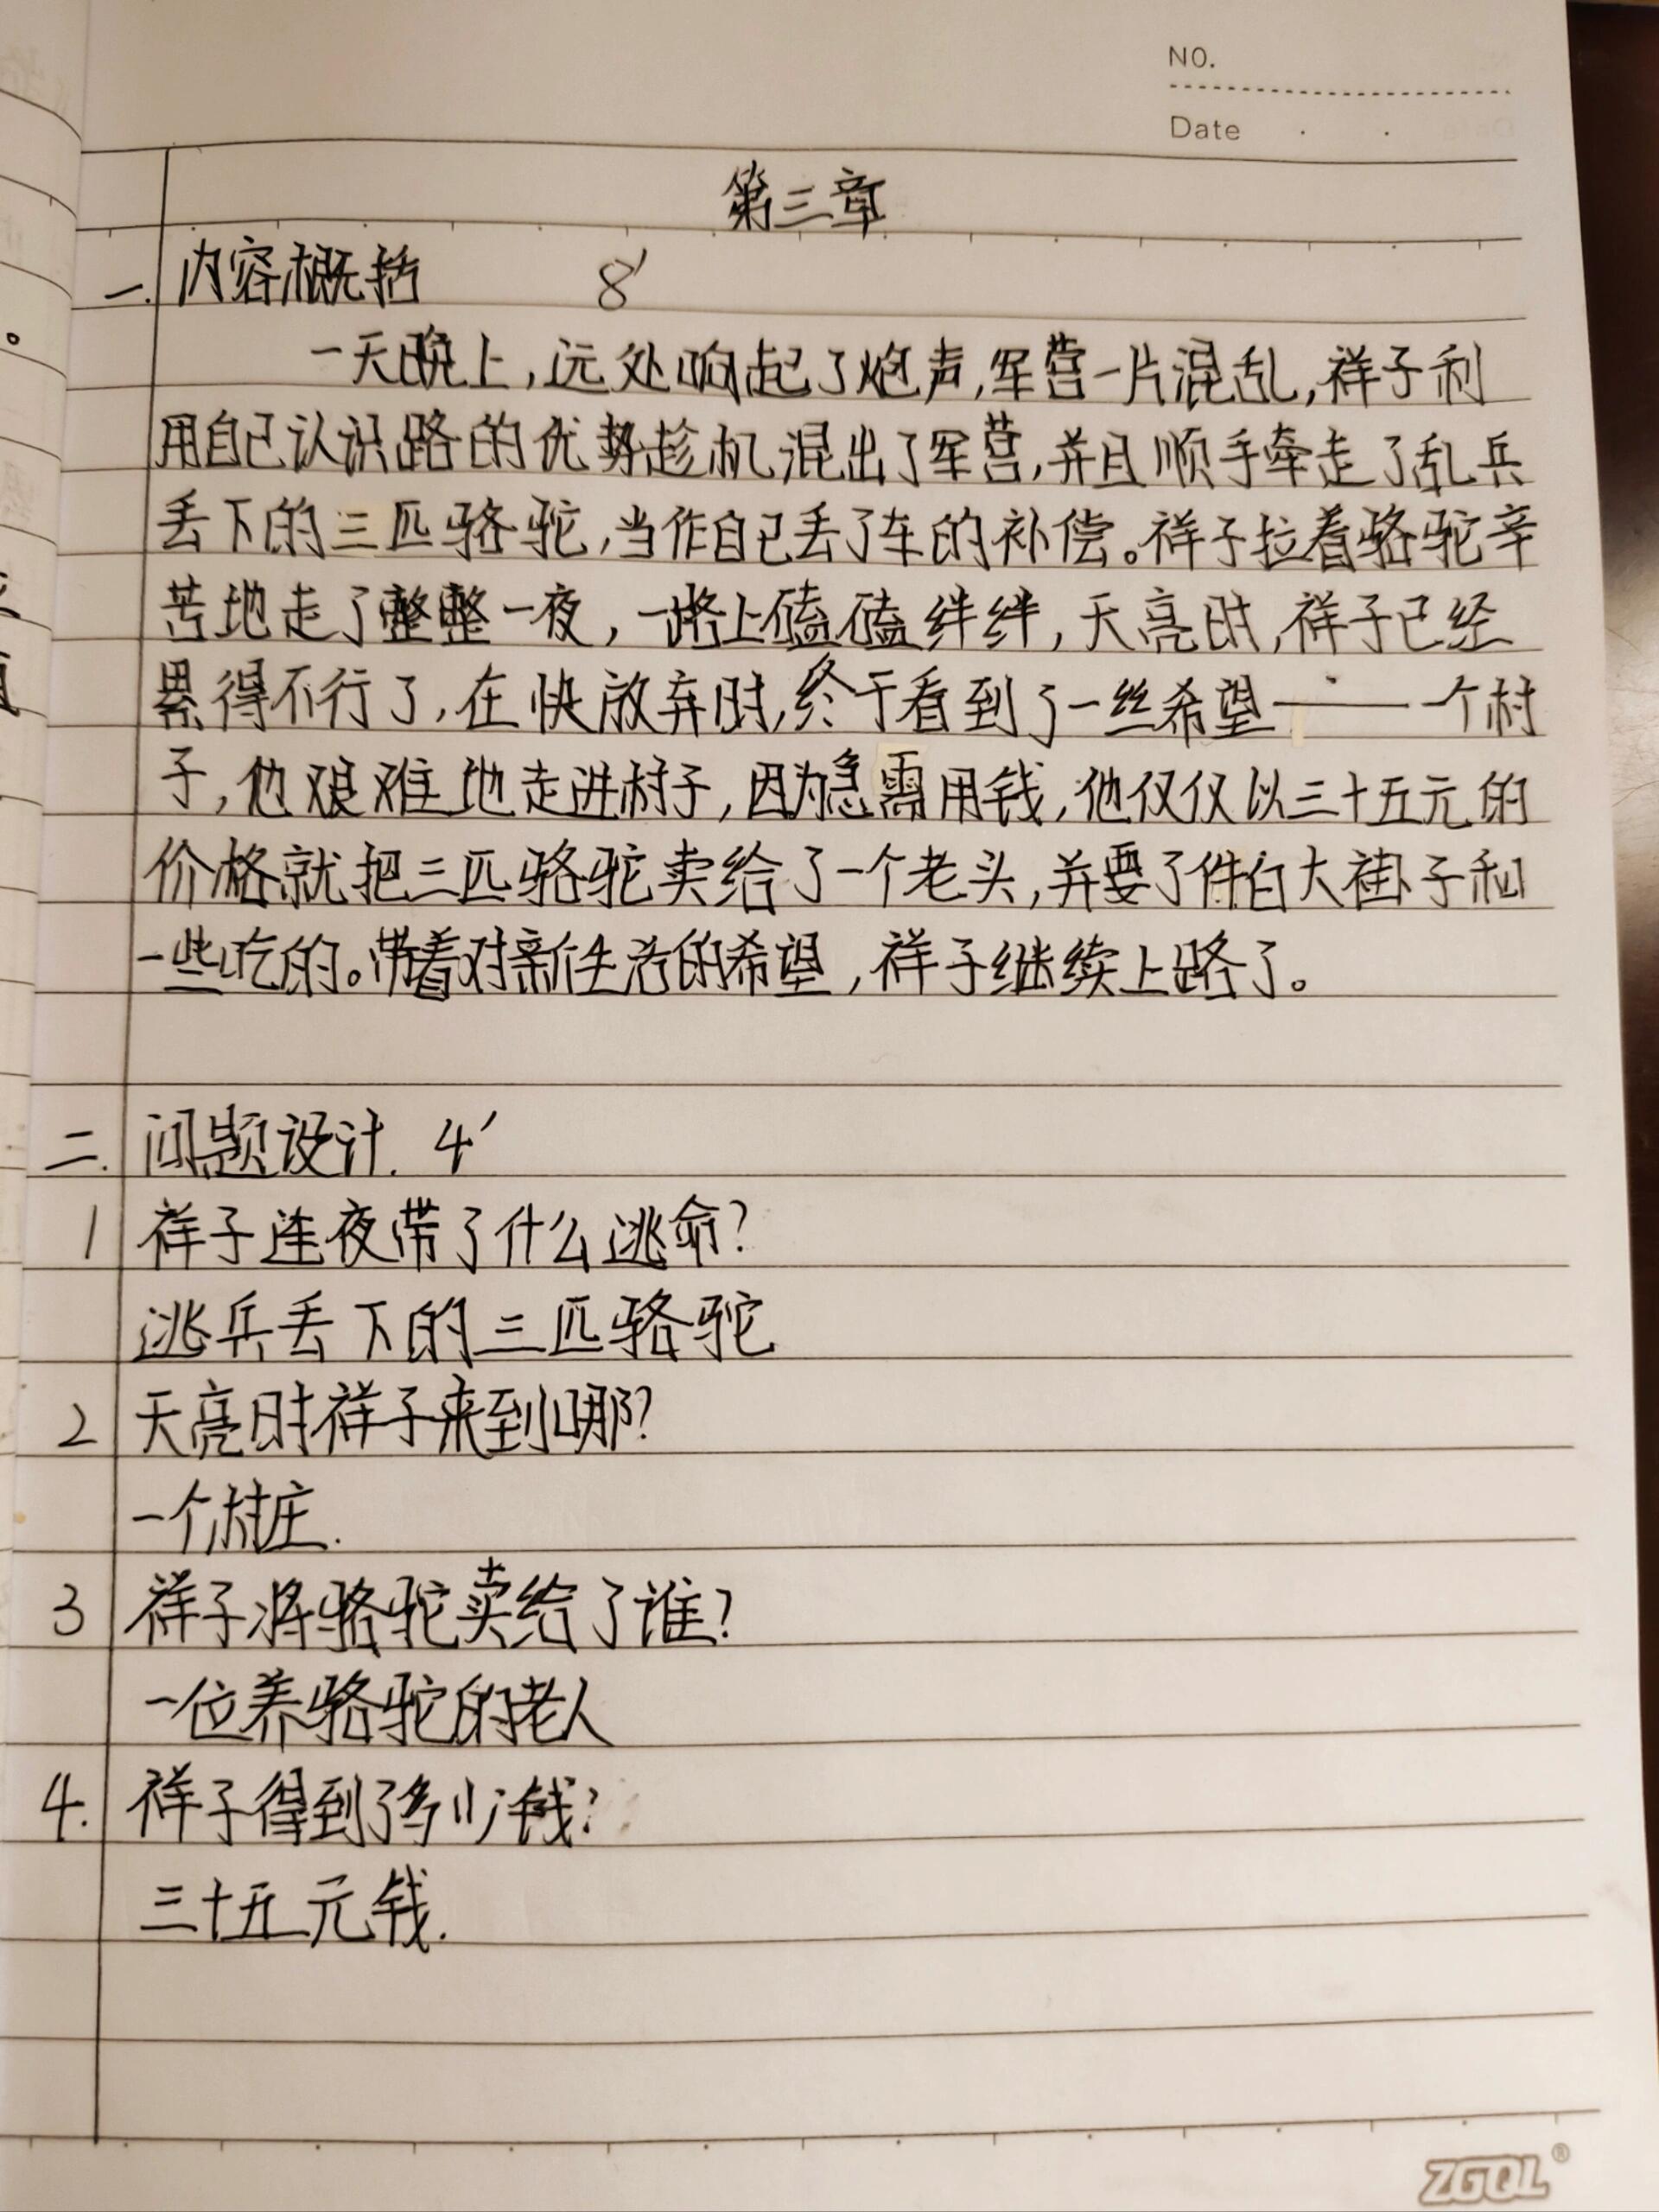 NO.
Date
第三章
一. 内容概括 8'
一天晚上,远处响起了炮声,军营一片混乱,祥子利
用自己认识路的优势趁机混出了军营,并且顺手牵走了乱兵
丢下的三匹骆驼,当作自己丢了车的补偿。祥子拉着骆驼辛
苦地走了整整一夜,一路上磕磕绊绊,天亮时,祥子已经
累得不行了,在快放弃时,终于看到了一丝希望——一个村
子,他艰难地走进村子,因为急需用钱,他仅仅以三十五元的
价格就把三匹骆驼卖给了一个老头,并要了件白大褂子和
一些吃的。带着对新生活的希望,祥子继续上路了。
二. 问题设计. 4'
1 祥子连夜带了什么逃命?
逃兵丢下的三匹骆驼
2 天亮时祥子来到哪?
一个村庄.
3 祥子将骆驼卖给了谁?
一位养骆驼的老人
4. 祥子得到了多少钱?
三十五元钱.
ZGQL®